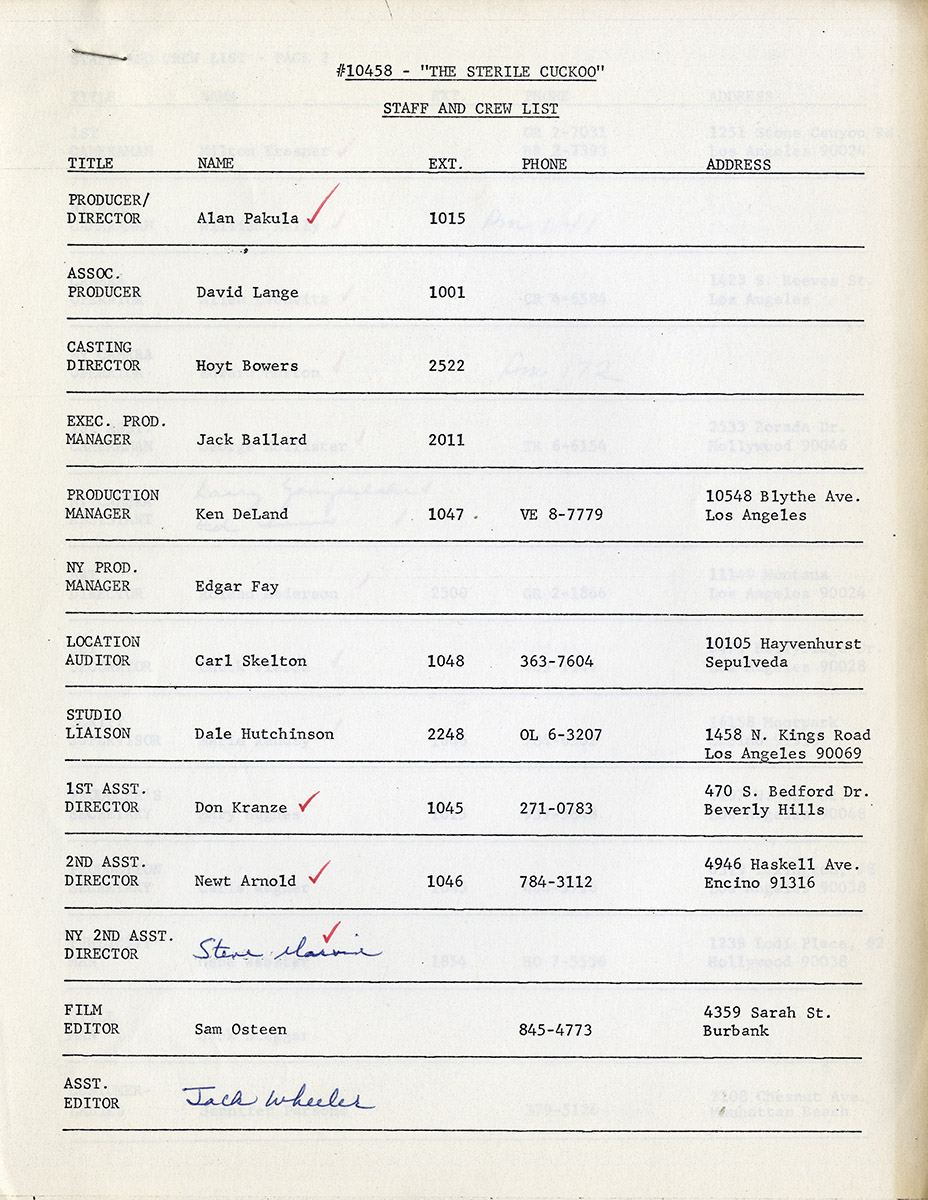 #10458 - "THE STERILE CUCKOO"
STAFF AND CREW LIST
TITLE NAME EXT. PHONE ADDRESS
PRODUCER/
DIRECTOR Alan Pakula 1015
ASSOC.
PRODUCER David Lange 1001
CASTING
DIRECTOR Hoyt Bowers 2522
EXEC. PROD.
MANAGER Jack Ballard 2011
PRODUCTION 10548 Blythe Ave.
MANAGER Ken DeLand 1047 VE 8-7779 Los Angeles
NY PROD.
MANAGER Edgar Fay
LOCATION 10105 Hayvenhurst
AUDITOR Carl Skelton 1048 363-7604 Sepulveda
STUDIO
LIAISON Dale Hutchinson 2248 OL 6-3207 1458 N. Kings Road
Los Angeles 90069
1ST ASST. 470 S. Bedford Dr.
DIRECTOR Don Kranze 1045 271-0783 Beverly Hills
2ND ASST. 4946 Haskell Ave.
DIRECTOR Newt Arnold 1046 784-3112 Encino 91316
NY 2ND ASST.
DIRECTOR Steve
FILM 4359 Sarah St.
EDITOR Sam Osteen 845-4773 Burbank
ASST.
EDITOR Jack Wheeler